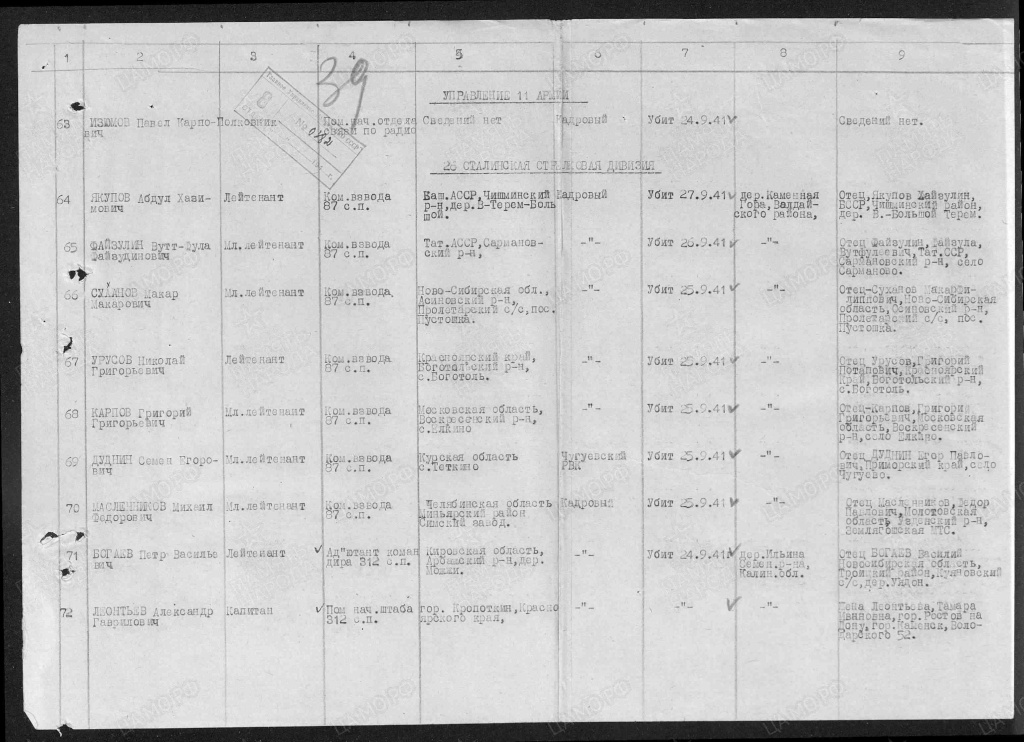 1 2 3 4 5 6 7 8 9
39
УПРАВЛЕНИЕ 11 АРМИИ
63 ИЗЮМОВ Павел Карпо- Полковник Пом.нач.отдела Сведений нет Кадровый Убит 24.9.41 Сведений нет.
вич связи по радио
26 СТАЛИНСКАЯ СТРЕЛКОВАЯ ДИВИЗИЯ
64 ЯКУПОВ Абдул Хази- Лейтенант Ком.взвода Баш.АССР,Чишминский Кадровый Убит 27.9.41 дер.Каменная Отец,Якупов Хайзулин,
мович 87 с.п. р-н,дер.В-Терем-Боль Гора,Валдай- БССР,Чишминский район,
шой. ского района, дер. В.-Большой Терем.
65 ФАЙЗУЛИН Вутт-Фула Мл.лейтенант Ком.взвода Тат.АССР,Сарманов- -"- Убит 26.9.41 -"- Отец Файзулин,Файзула,
Файзудинович 87 с.п. ский р-н, Вутфулеевич,Тат.ССР,
Сармановский р-н, село
Сарманово.
66 СУХАНОВ Макар Мл.лейтенант Ком.взвода Ново-Сибирская обл., -"- Убит 25.9.41 -"- Отец-Суханов Макар
Макарович 87 с.п. Асиновский р-н, липпович,Ново-Сибирская
Пролетарский с/с,пос. область,Осиновский р-н,
Пустошка. Пролетарский с/с, пос.
Пустошка.
67 УРУСОВ Николай Лейтенант Ком.взвода Красноярский край, -"- Убит 25.9.41 -"- Отец Урусов,Григорий
Григорьевич 87 с.п. Боготольский р-н, Потапович,Красноярский
с.Боготоль. Край,Боготольский р-н,
с.Боготоль.
68 КАРПОВ Григорий Мл.лейтенант Ком.взвода Московская область, -"- Убит 25.9.41 -"- Отец-Карпов,Григорий
Григорьевич 87 с.п. Воскресенский р-н, Григорьевич,Московская
с.Елкино область,Воскресенский
р-н,село Елкино.
69 ДУДНИН Семен Егоро- Мл.лейтенант Ком.взвода Курская область Чугуевский Убит 25.9.41 -"- Отец ДУДНИН Егор Павло-
вич 87 с.п. с.Теткино РВК вич,Приморский край,село
Чугуево.
70 МАСЛЕННИКОВ Михаил Мл.лейтенант Ком.взвода Челябинская область Кадровый Убит 25.9.41 -"- Отец Масленников,Федор
Федорович 87 с.п. Миньярский район Павлович,Молотовская
Симский завод. область Уеденский р-н,
Землягошская МТС.
71 БОГАЕВ Петр Василье Лейтенант Ад"ютант коман Кировская область, -"- Убит 24.9.41 дер.Ильина Отец БОГАЕВ Василий
вич дира 312 с.п. Арбажский р-н,дер. Семен.р-на, Новосибирская область,
Мошки. Калин.обл. Троицкий район,
с/с,дер.
72 ЛЕОНТЬЕВ Александр Капитан Пом нач.штаба гор. Кропоткин,Красно -"- -"- -"- Жена Леонтьева,Тамара
Гаврилович 312 с.п. ярского края, Ивановна,гор.Ростов на
Дону,гор.Каменск,Воло-
дарского 52.